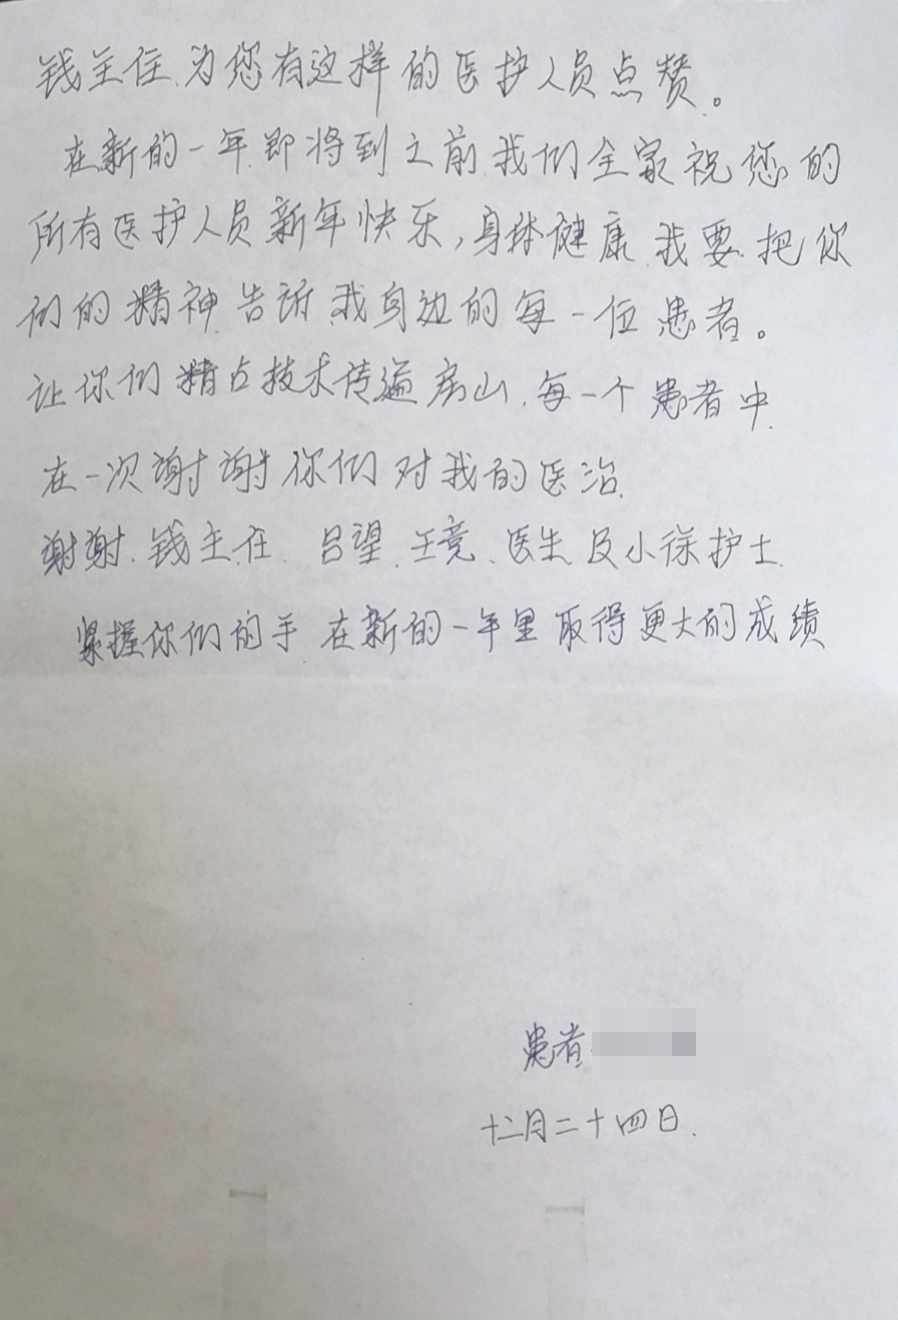 钱主任、为您有这样的医护人员点赞。
在新的一年即将到之前我们全家祝您的
所有医护人员新年快乐,身体健康.我要把你
们的精神.告诉.我身边的每一位患者。
让你们精占技术传遍房山.每一个患者中.
在一次谢谢你们对我的医治.
谢谢.钱主任、吕望、王竞、医生及小徐护士.
紧握你们的手 在新的一年里取得更大的成绩
患者
十二月二十四日.